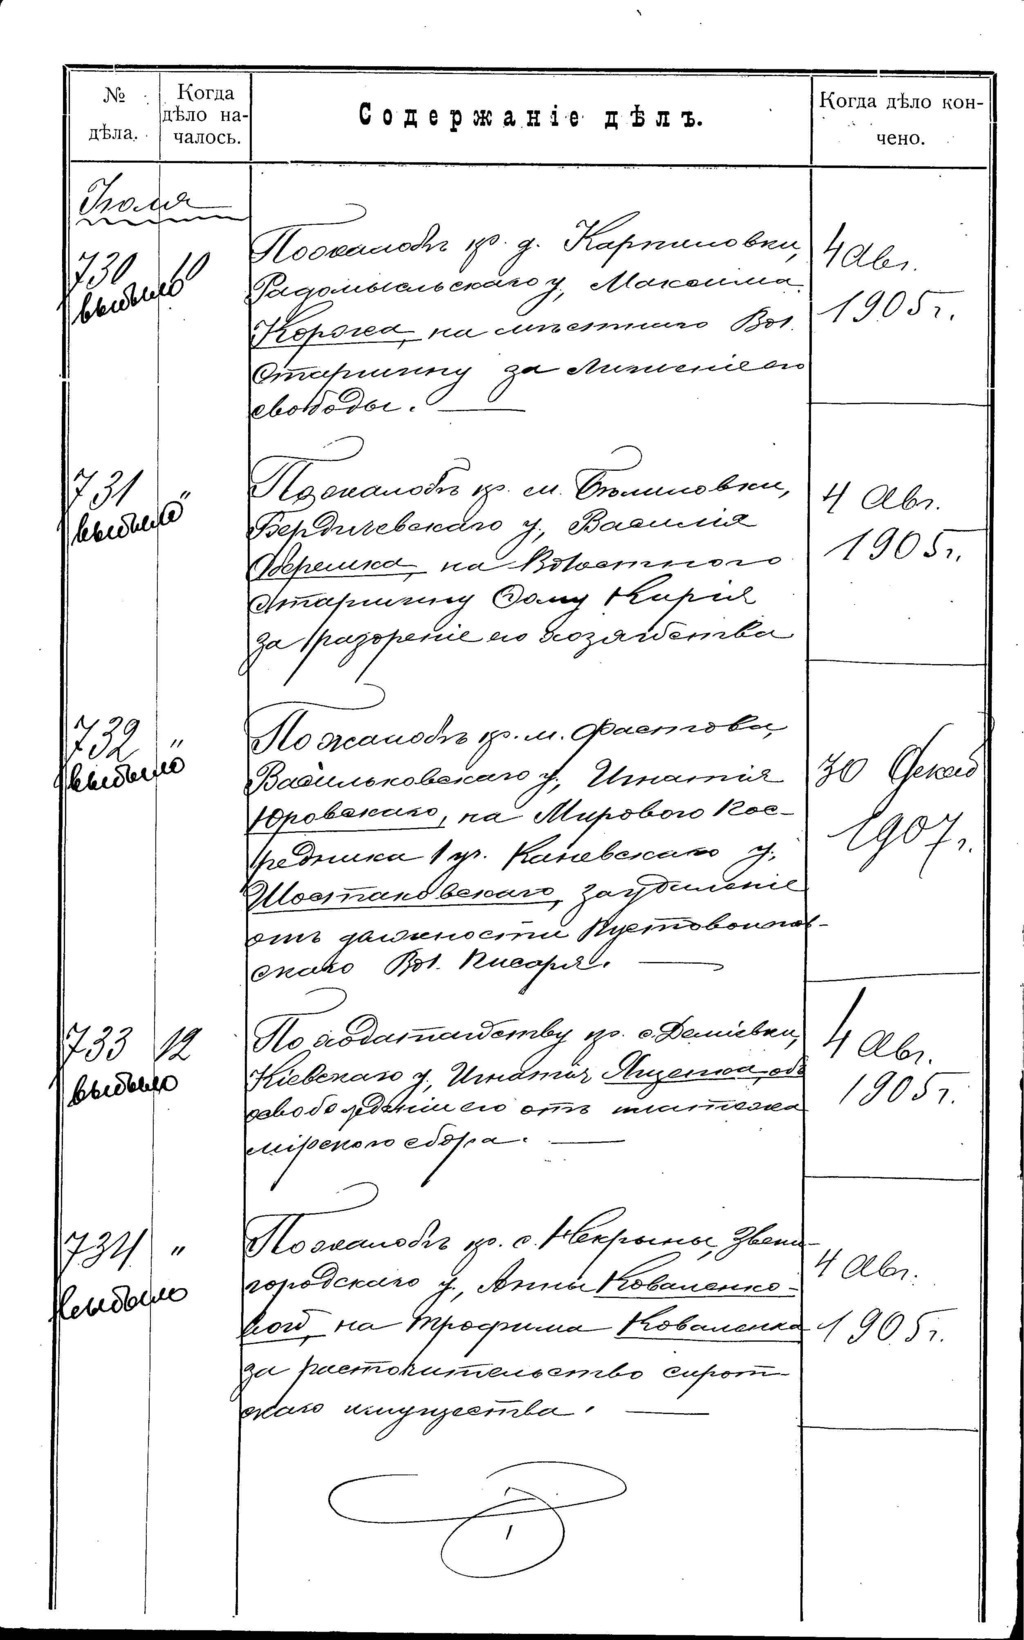 № дѣла.
Когда дѣло на-
чалось.
Содержаніе дѣлъ.
Когда дѣло кон-
чено.
Іюля
730 10
выбыло
По жалобѣ кр. д. Карпиловки,
Радомысльскаго у, Максима
Коржа, на мѣстнаго Вол.
Старшину за лишеніе его
свободы.
4 Авг.
1905 г.
731 "
выбыло
По жалобѣ кр. м. Бѣлиловки,
Бердичевскаго у, Василія
на Волостного
Старшину Кирія
за разореніе его хозяйства
4 Авг.
1905 г.
732 "
выбыло
По жалобѣ кр. м. Фастова,
Васильковскаго у, Игнатія
Юровскаго, на Мирового Пос-
редника 1 уч. Каневскаго у.
Шостаковскаго, за удаленіе
отъ должности Пустовойтов-
скаго Вол. Писаря.
30 Декаб
1907 г.
733 12
выбыло
По ходатайству кр. с. Деміевки,
Кіевскаго у, Игнатія Яценка, объ
освобожденіи его отъ платежа
мірского сбора.
4 Авг.
1905 г.
734 "
выбыло
По жалобѣ кр. с. Некрыны, Звени-
городскаго у, Анны Коваленко-
вой, на Трофима Коваленка
за расточительство сирот-
скаго имущества.
4 Авг.
1905 г.